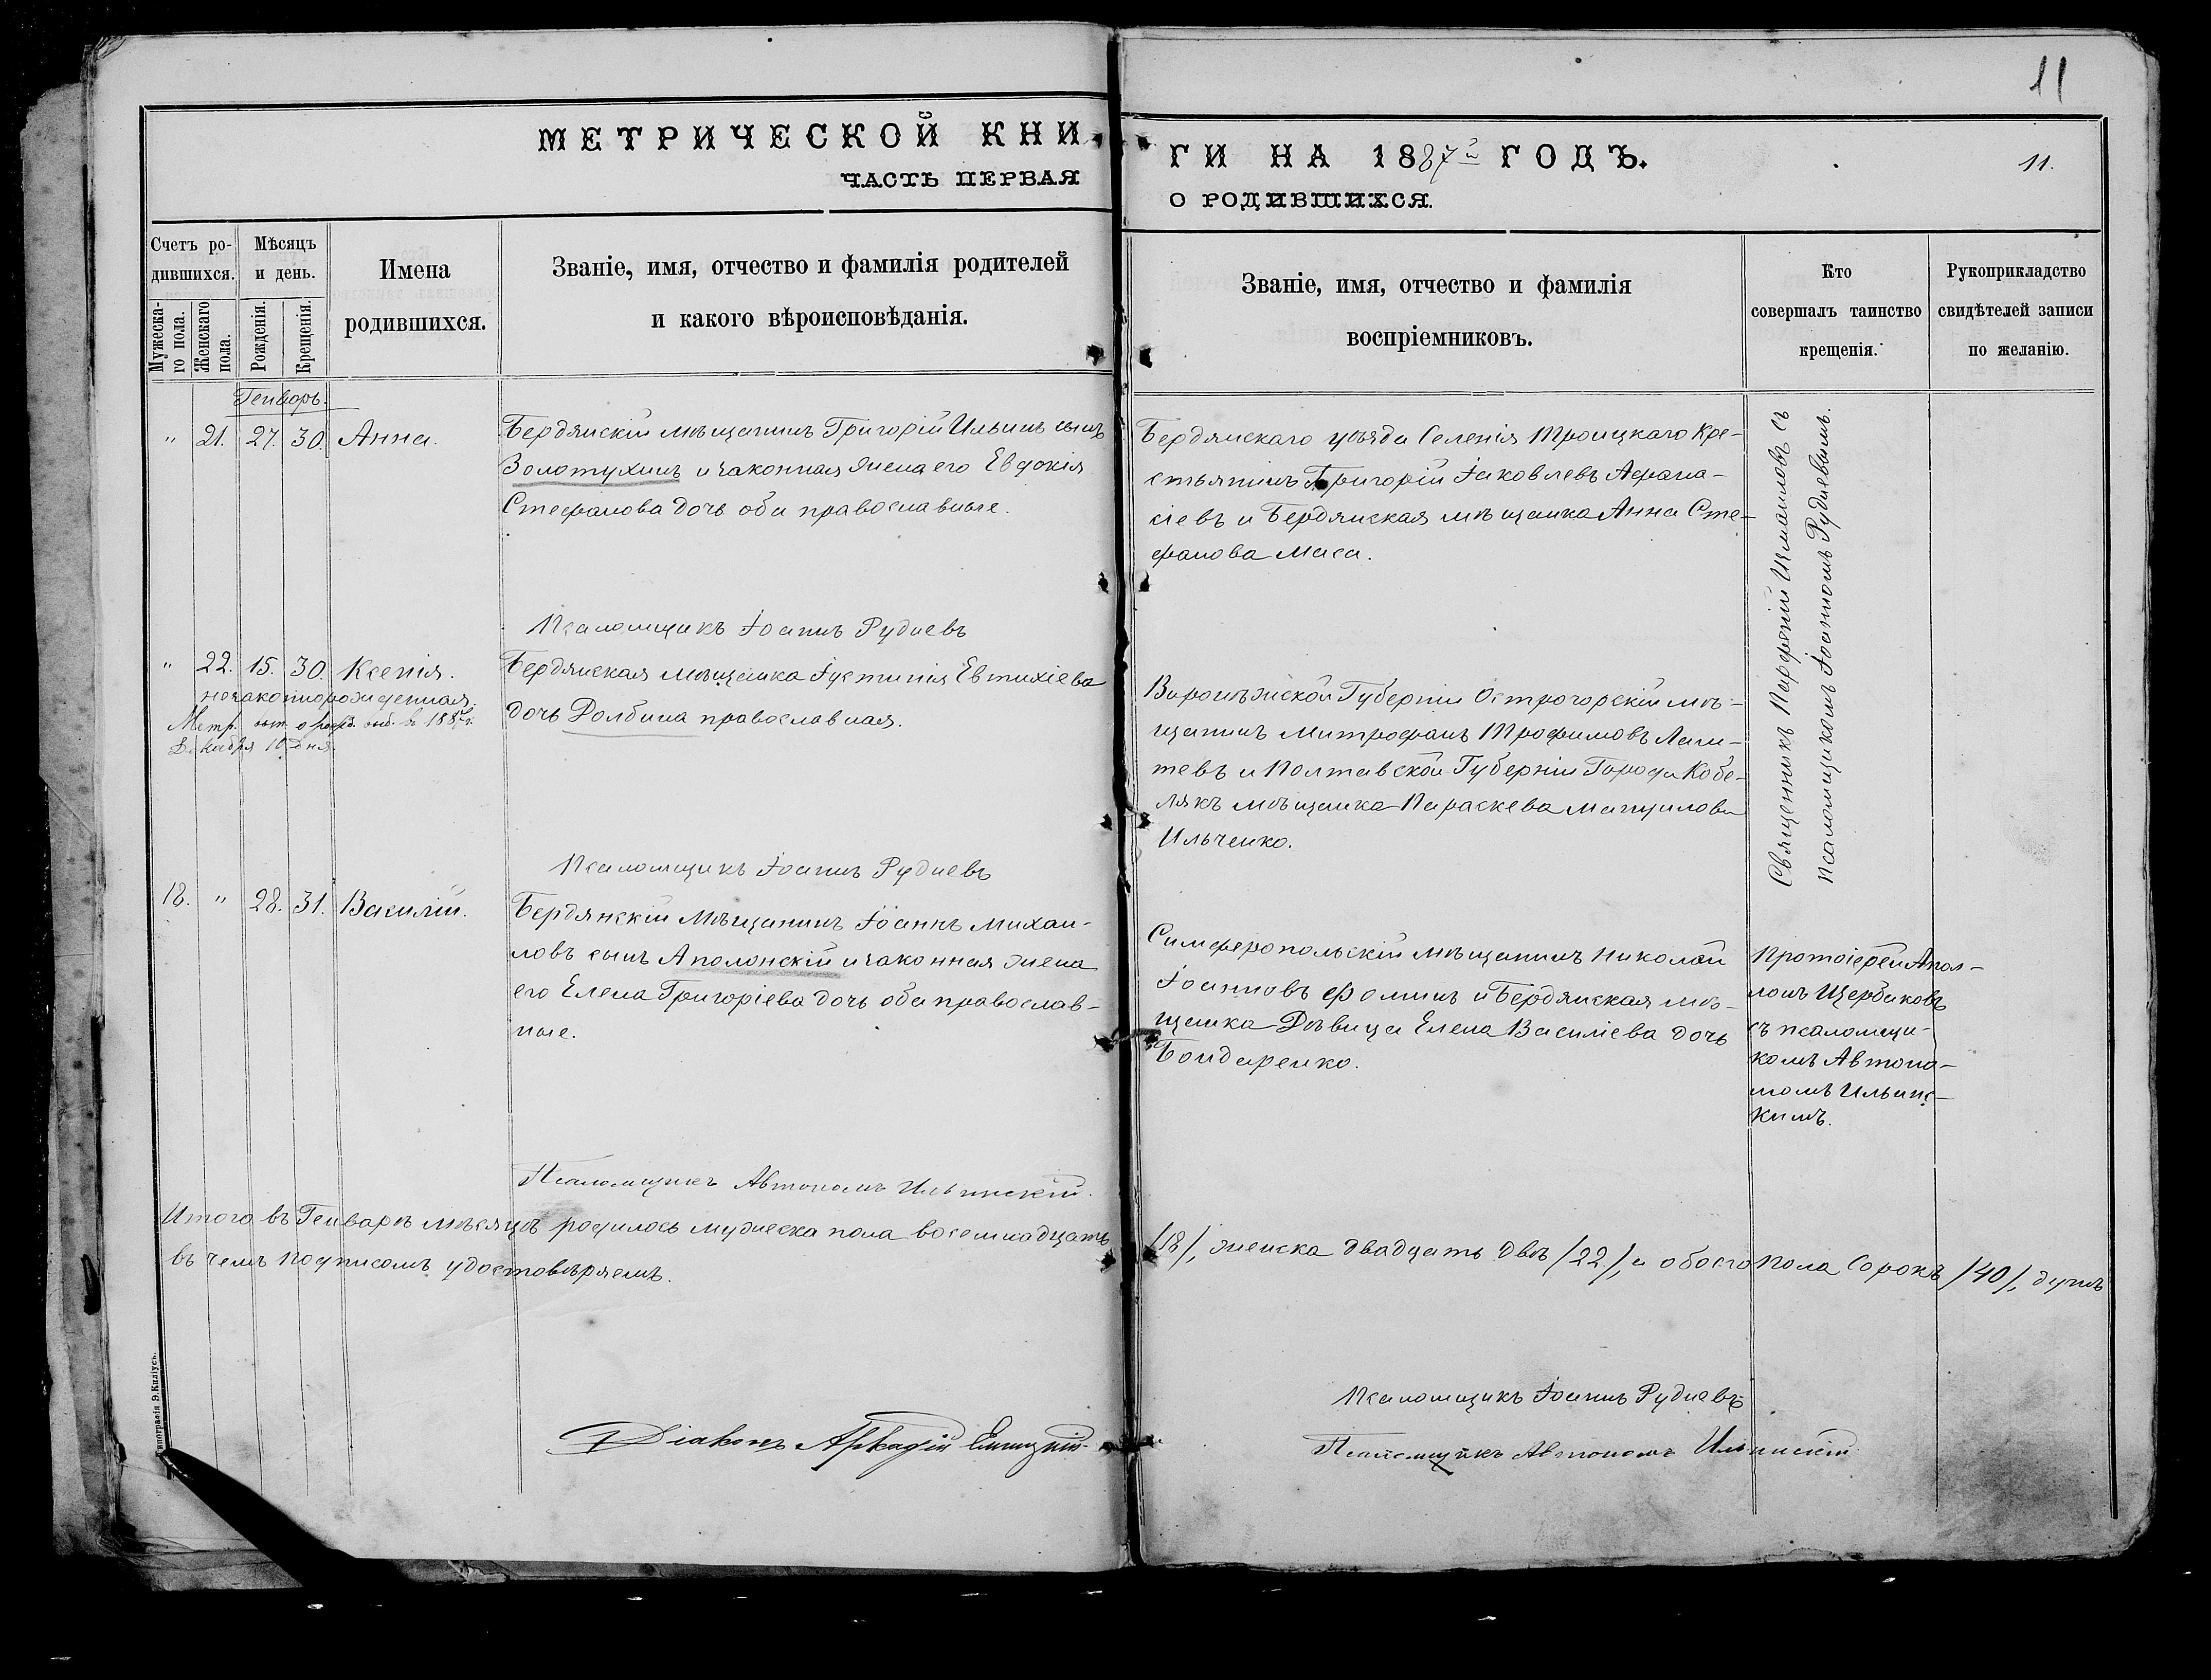 11
МЕТРИЧЕСКОЙ КНИ-
ЧАСТЬ ПЕРВАЯ
ГИ НА 1887й ГОДЪ.
О РОДИВШИХСЯ.
11.
Счетъ ро-
дившихся.
Мужеска-
го пола.
Женскаго
пола.
Мѣсяцъ
и день.
Рожденія.
Крещенія.
Имена
родившихся.
Званіе, имя, отчество и фамилія родителей
и какого вѣроисповѣданія.
Званіе, имя, отчество и фамилія
воспріемниковъ.
Кто
совершалъ таинство
крещенія.
Рукоприкладство
свидѣтелей записи
по желанію.
Генварь.
" 21. 27. 30. Анна.
Бердянскій мѣщанинъ Григорій Ильинъ сынъ
Золотухинъ и законная жена его Евдокія
Стефанова дочь оба православные.
Бердянскаго уѣзда Селенія Троицкаго Кре-
стьянинъ Григорій Іаковлевъ Афана-
сіевъ и Бердянская мѣщанка Анна Сте-
фанова Маса.
Священникъ Парфеній Измаиловъ съ
Псаломщикомъ Іоанномъ Рудневымъ.
Псаломщикъ Іоаннъ Рудневъ
" 22. 15. 30. Ксенія.
незаконнорожденная.
Метр. о 188
Декабря 10 дня.
Бердянская мѣщанка Іустинія Евтихіева
дочь Долбина православная.
Воронѣжской Губерніи Острогорскій мѣ-
щанинъ Митрофанъ Трофимовъ Лап-
тевъ и Полтавской Губерніи Города Кобе-
лякъ мѣщанка Параскева
Ильченко.
Псаломщикъ Іоаннъ Рудневъ
18. " 28. 31. Василій.
Бердянскій Мѣщанинъ Іоаннъ Михаи-
ловъ сынъ Аполонскій и законная жена
его Елена Григоріева дочь оба православ-
ные.
Симферопольскій мѣщанинъ Николай
Іоанновъ Фоминъ и Бердянская мѣ-
щанка Дѣвица Елена Василіева дочь
Бондаренко.
Протоіерей Апол-
лонъ Щербаковъ
съ псаломщи-
комъ Автоно-
момъ Ильинс-
кимъ.
Псаломщикъ Автономъ Ильинскій.
Итого въ Генварѣ мѣсяцѣ родилось мужеска пола восемнадцать /18/, женска двадцать двѣ /22/, а обоего пола Сорокъ /40/, душъ
въ чемъ подписомъ удостовѣряемъ.
Діаконъ Аркадій
Псаломщикъ Іоаннъ Рудневъ
Псаломщикъ Автономъ Ильинскій
Типографія Э.Киліусъ.